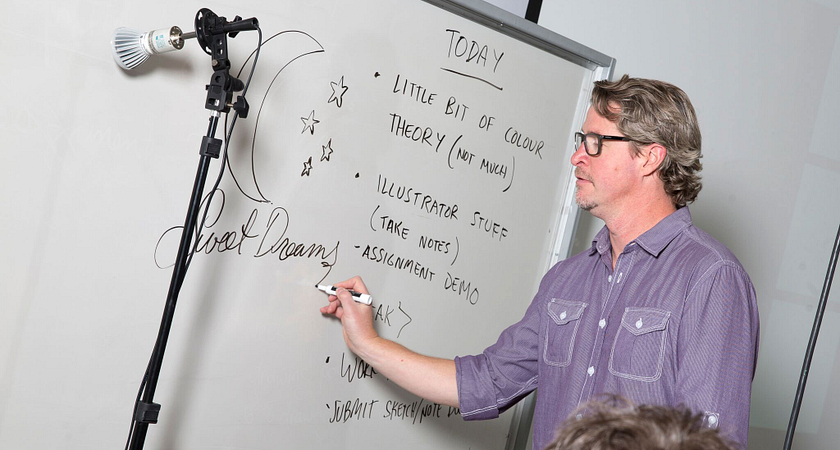 TODAY
• LITTLE BIT OF COLOUR
THEORY (NOT MUCH)
• ILLUSTRATOR STUFF
(TAKE NOTES)
- ASSIGNMENT DEMO
• SUBMIT SKETCH/NOTE
Sweet Dreams